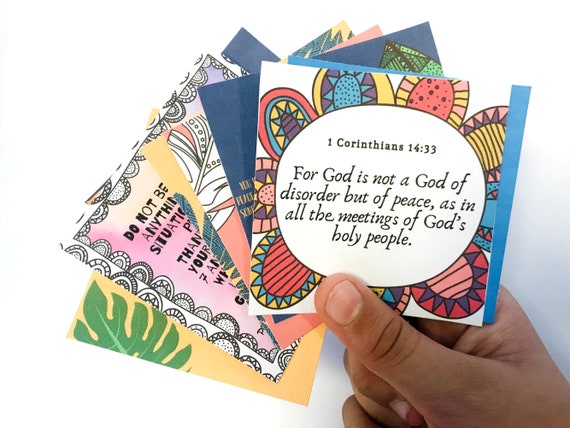 1 Corinthians 14:33
For God is not a God of
disorder but of peace, as in
all the meetings of God's
holy people.
DO NOT BE
ANYTHIN
SITUATI
P
THAN
YOUR
7 AN
W
G
YOU
PEAC
SOM